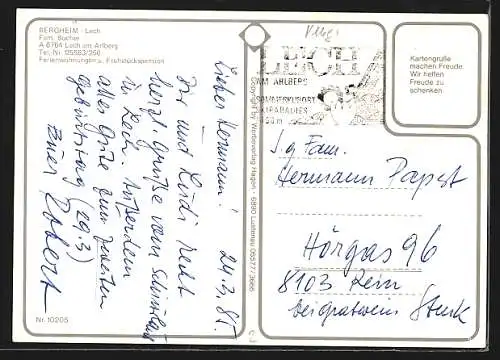 BERGHEIM - Lech
Fam. Bücher
A 6764 Lech am Arlberg
Tel. Nr. 05583/256
Ferienwohnungen u. Frühstückspension
24.3.85
Lieber Hermann!
Dir und Lindi recht
herzl. Grüße vom Schiurlaub
in Lech. Außerdem
alles Gute zum zweiten
Geburtstag (29.3)
Euer Robert
Nr. 10205
Copyright by Werbeverlag Hagen - 6890 Lustenau 05577-3666
LECH
AM ARLBERG
SOMMERSKISPORT
SKIPARADIES
Kartengrüße
machen Freude.
Wir helfen
Freude zu
schenken.
Fam.
Hermann Papst
Hörgas 96
8103 Rein